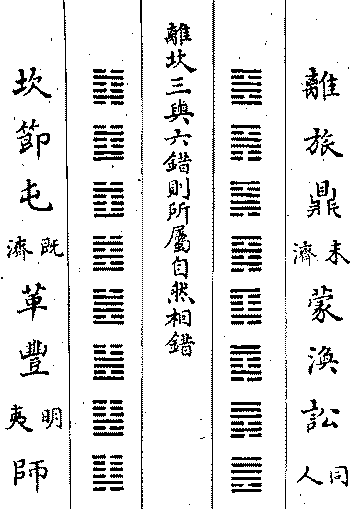 離旅鼎未濟蒙渙訟同人
離坎三與六錯則所屬自然相錯
坎節屯既濟革豐明夷師